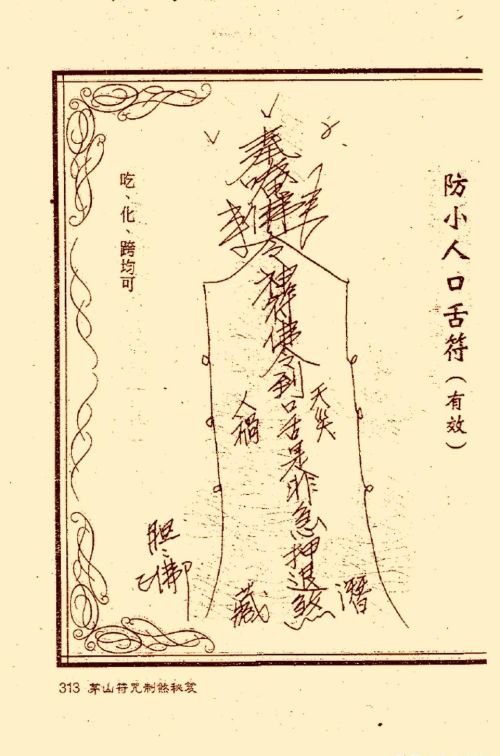 防小人口舌符(有效)
天灾
潛
奉
令神符佛令到口舌是非急押退煞
人禍
藏
吃、化、跨均可
313 茅山符咒制煞秘笈